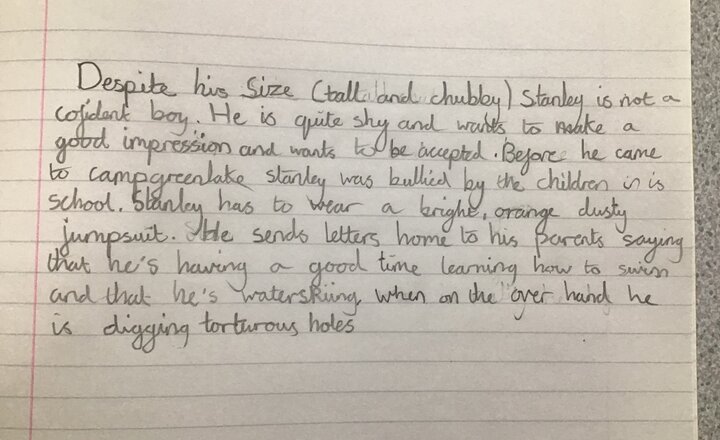 Despite his size (tall and chubby) Stanley is not a
cofident boy. He is quite shy and wants to make a
good impression and wants to be accepted. Before he came
to campgreenlake stanley was bullied by the children in is
school. Stanley has to wear a bright, orange dusty
jumpsuit. He sends letters home to his parents saying
that he's having a good time learning how to swim
and that he's waterskiing, when on the over hand he
is digging torturous holes